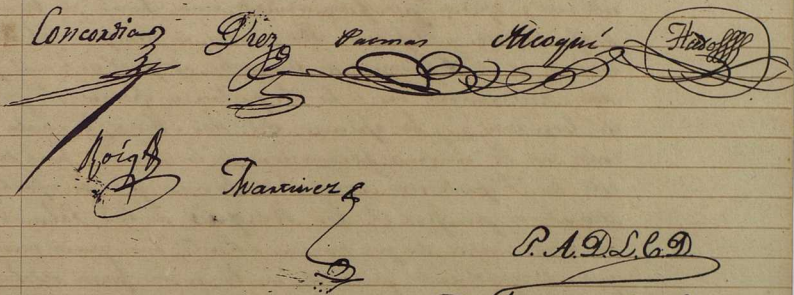 Concordia Diez Palmas Moqui
Roig
Martinez
P. A. D. L. C. D